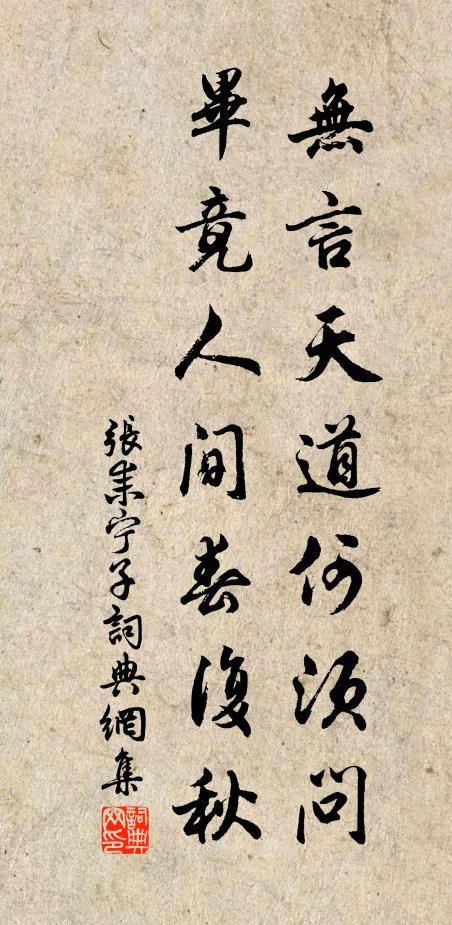 無言天道何須問
畢竟人間春復秋
張耒宁子詞典網集
詞典網印